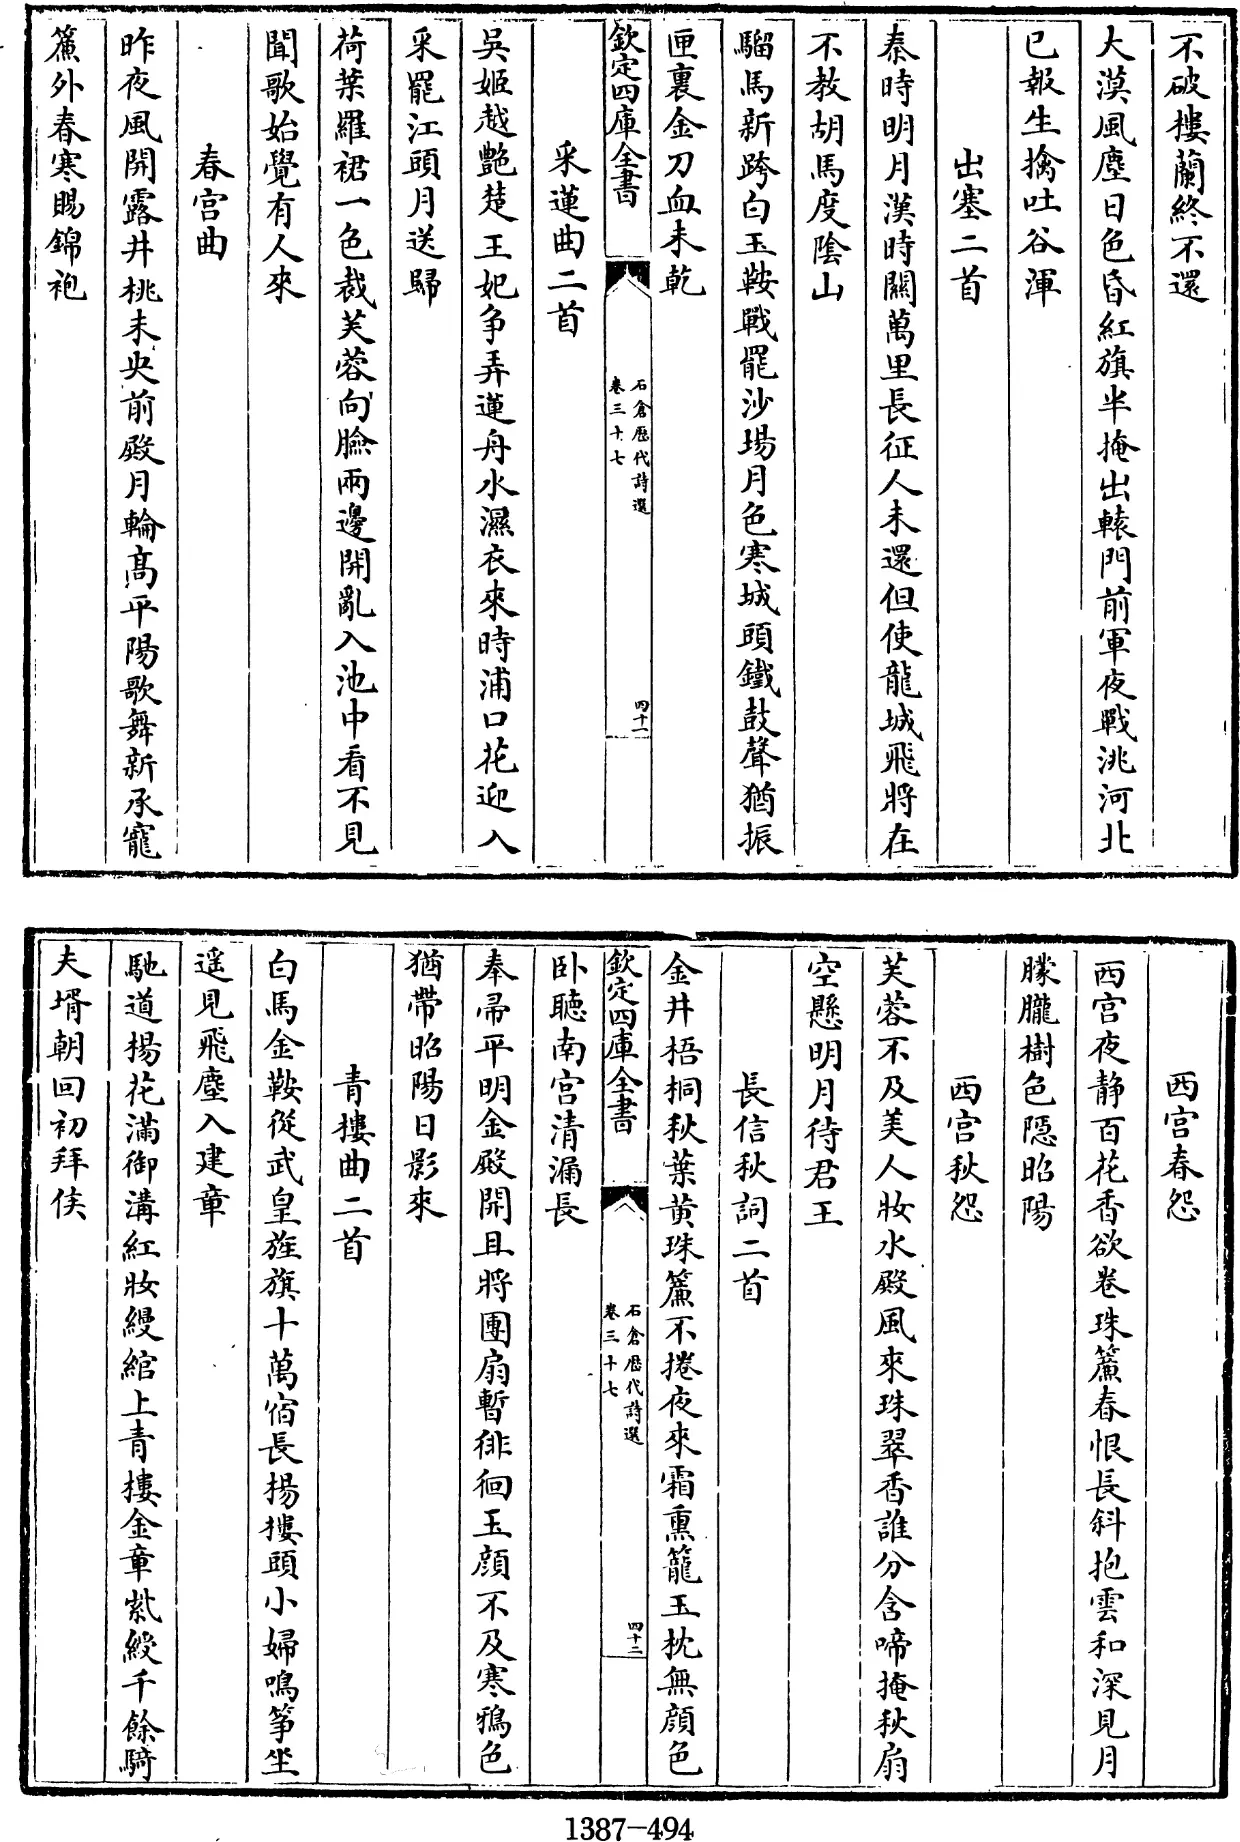 不破樓蘭終不還
大漠風塵日色昏紅旗半掩出轅門前軍夜戰洮河北
已報生擒吐谷渾
出塞二首
秦時明月漢時關萬里長征人未還但使龍城飛將在
不教胡馬度陰山
騮馬新跨白玉鞍戰罷沙場月色寒城頭鐵鼓聲猶振
匣裏金刀血未乾
欽定四庫全書
石倉歴代詩選
卷三十七
四十一
采蓮曲二首
吳姬越艷楚王妃争弄蓮舟水濕衣來時浦口花迎入
采罷江頭月送歸
荷葉羅裙一色裁芙蓉向臉兩邊開亂入池中看不見
聞歌始覺有人來
春宫曲
昨夜風開露井桃未央前殿月輪髙平陽歌舞新承寵
簾外春寒賜錦袍
西宫春怨
西宫夜静百花香欲卷珠簾春恨長斜抱雲和深見月
朦朧樹色隠昭陽
西宫秋怨
芙蓉不及美人妝水殿風來珠翠香誰分含啼掩秋扇
空懸明月待君王
長信秋詞二首
金井梧桐秋葉黄珠簾不捲夜來霜熏籠玉枕無顔色
卧聽南宫清漏長
欽定四庫全書
石倉歴代詩選
卷三十七
四十二
奉帚平明金殿開且將團扇暫徘徊玉顔不及寒鴉色
猶帶昭陽日影來
青樓曲二首
白馬金鞍從武皇旌旗十萬宿長揚樓頭小婦鳴箏坐
遥見飛塵入建章
馳道揚花滿御溝紅妝縵綰上青樓金章紫綬千餘騎
夫壻朝回初拜侯
1387-494